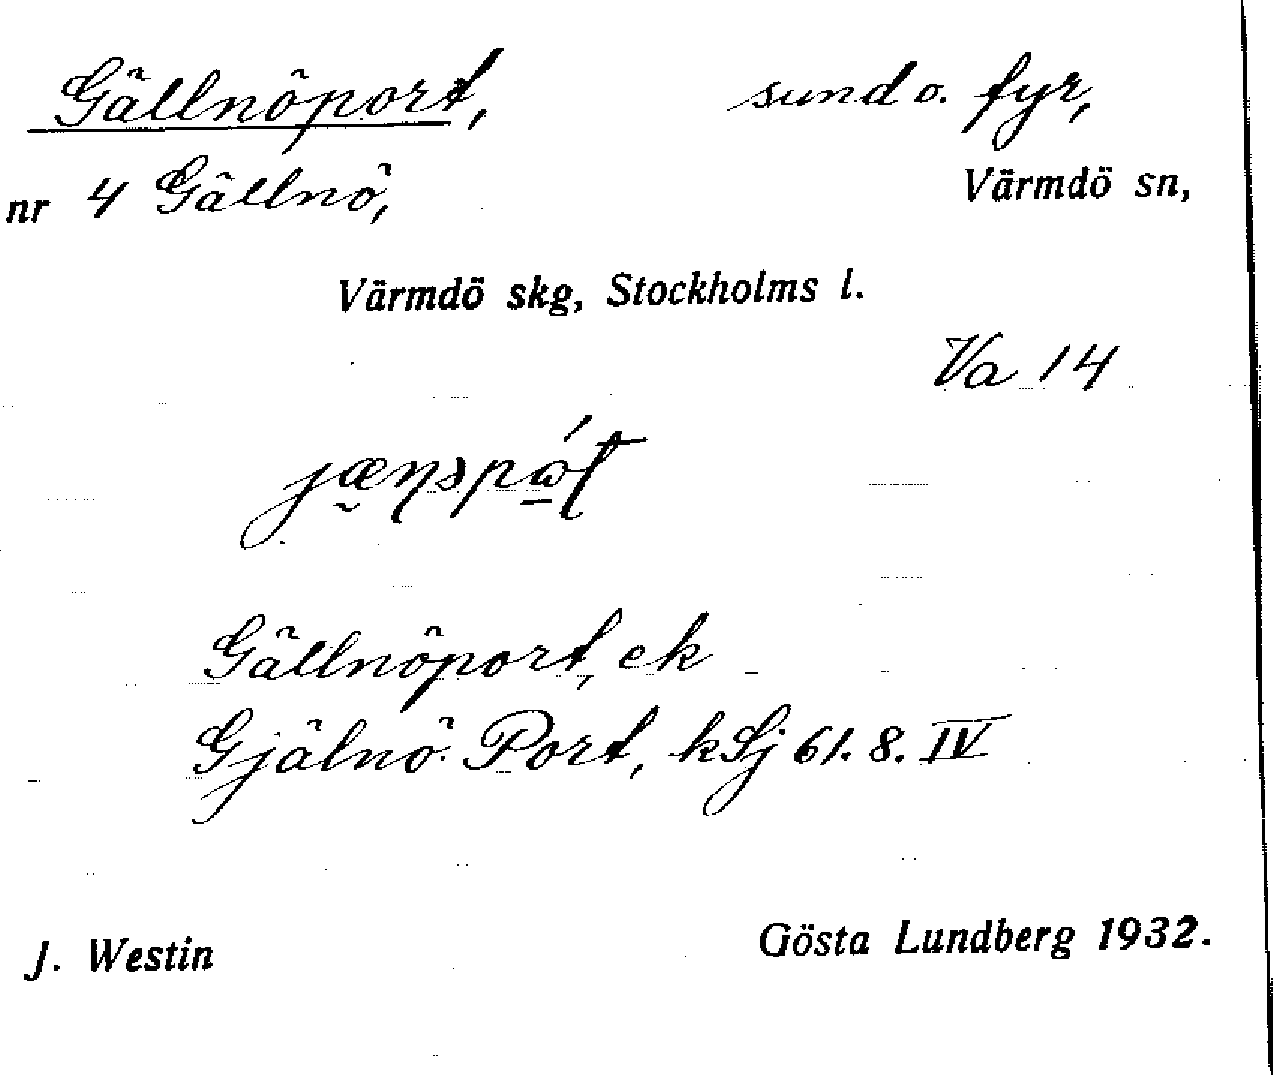 Gällnöport, sund o. fyr,
nr 4 Gällnö, Värmdö sn,
Värmdö skg, Stockholms l.
Va 14
Gällnöport, ek
Gjälnö Port, kSj 61. 8. IV
J. Westin Gösta Lundberg 1932.